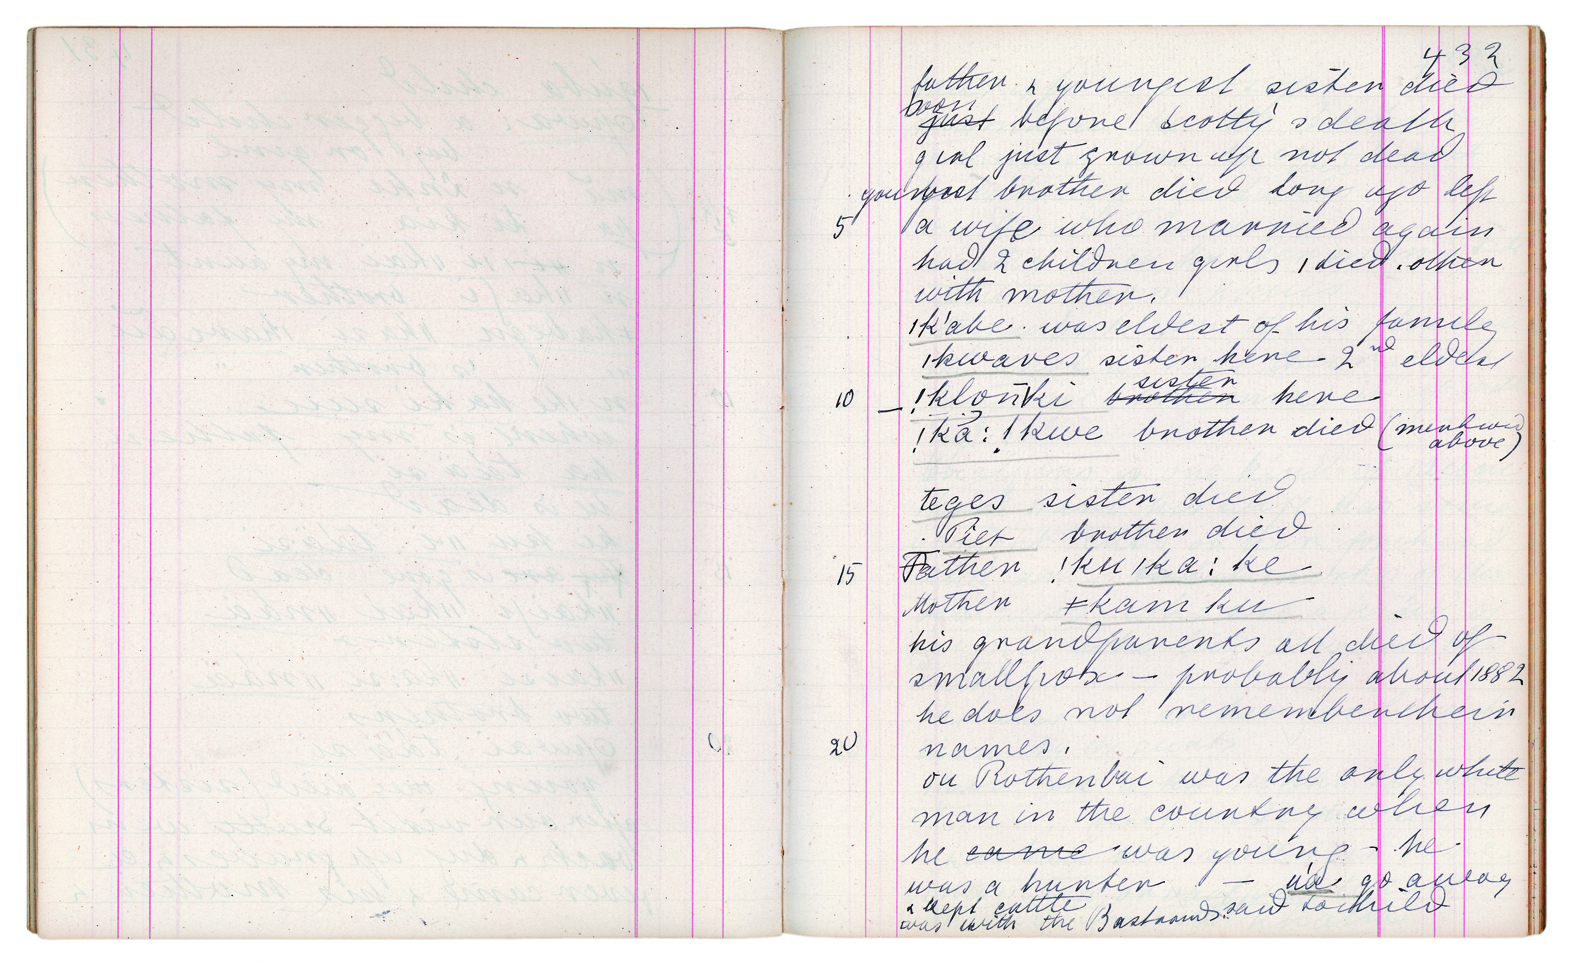 432
father & youngest sister died
soon
just before Scotty's death
girl just grown up not dead
youngest brother died long ago left
5 a wife who married again
had 2 children girls, 1 died. other
with mother.
ǀk'abe. was eldest of his family
ǀkwaves sister here 2nd eldest
sister
10 !kloŋki brother here
!ka: !kwe brother died (mentioned
above)
teges sister died
Piet brother died
15 Father !kuǀka: ke
Mother ǂkam ku
his grandparents all died of
smallpox — probably about 1882
he does not remember their
20 names.
ou Rothenbui was the only white
man in the country when
he came was young - he
was a hunter — u'a go away
& kept cattle said to child
was with the Bastaards